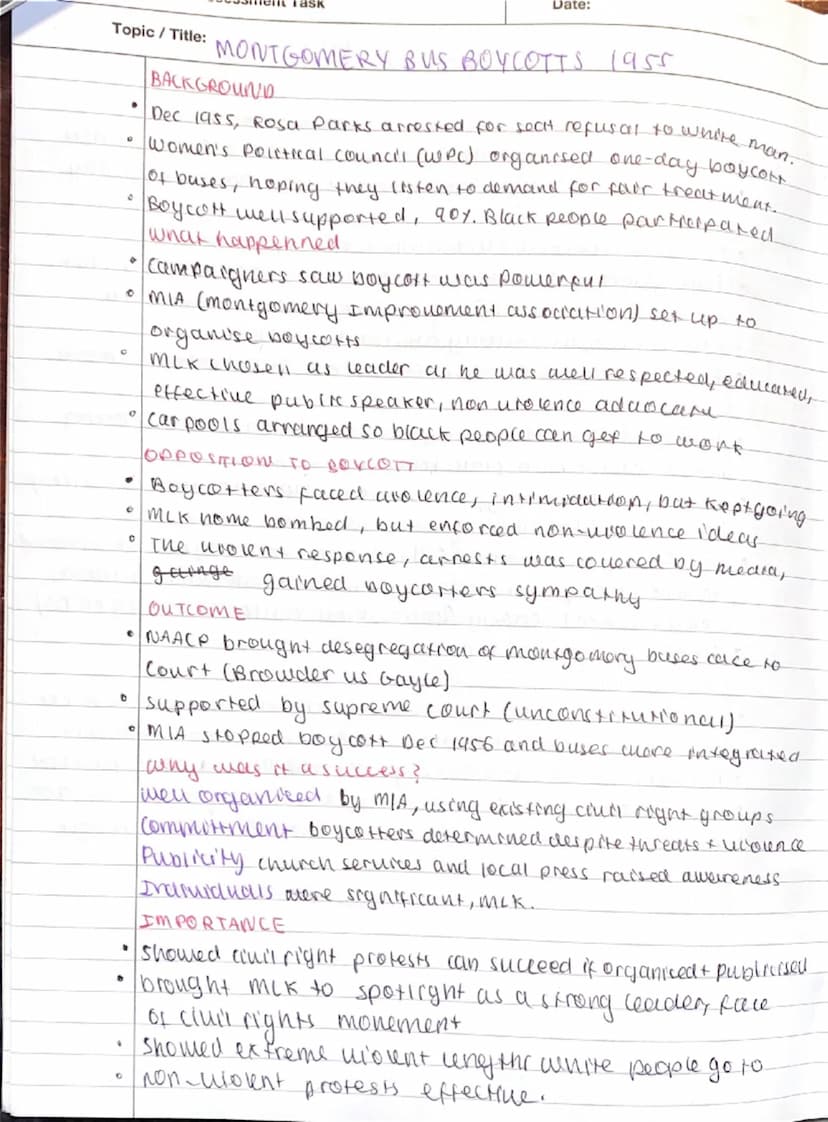 ssment Task
Date:
Topic / Title: MONTGOMERY BUS BOYCOTTS 1955
BACKGROUND
• Dec 1955, Rosa Parks arrested for seat refusal to white man.
• Women's Political Council (WPC) organised one-day boycott
of buses, hoping they listen to demand for fair treatment.
• Boycott well supported, 90% Black people participated
What happenned
• Campaigners saw boycott was powerful
• MIA (Montgomery Improvement association) set up to
organise boycotts
• MLK chosen as leader as he was well respected, educated,
effective public speaker, non violence advocate
• Car pools arranged so black people can get to work
OPPOSITION TO BOYCOTT
• Boycotters faced violence, intimidation, but kept going
• MLK home bombed, but enforced non-violence ideas
• The violent response, arrests was covered by media,
gained boycotters sympathy
OUTCOME
• NAACP brought desegregation of Montgomory buses case to
Court (Browder vs Gayle)
• supported by supreme court (unconstitutional)
• MIA stopped boycott Dec 1956 and buses were integrated
Why was it a success?
Well organised by MIA, using existing civil right groups
Committment boycotters determined despite threats + violence
Publicity church services and local press raised awareness
Individuals were significant, MLK.
IMPORTANCE
• Showed civil right protests can succeed if organised + publicised
• brought MLK to spotlight as a strong leader, face
of civil rights movement
• Showed extreme violent lengths white people go to
• non-violent protests effective.